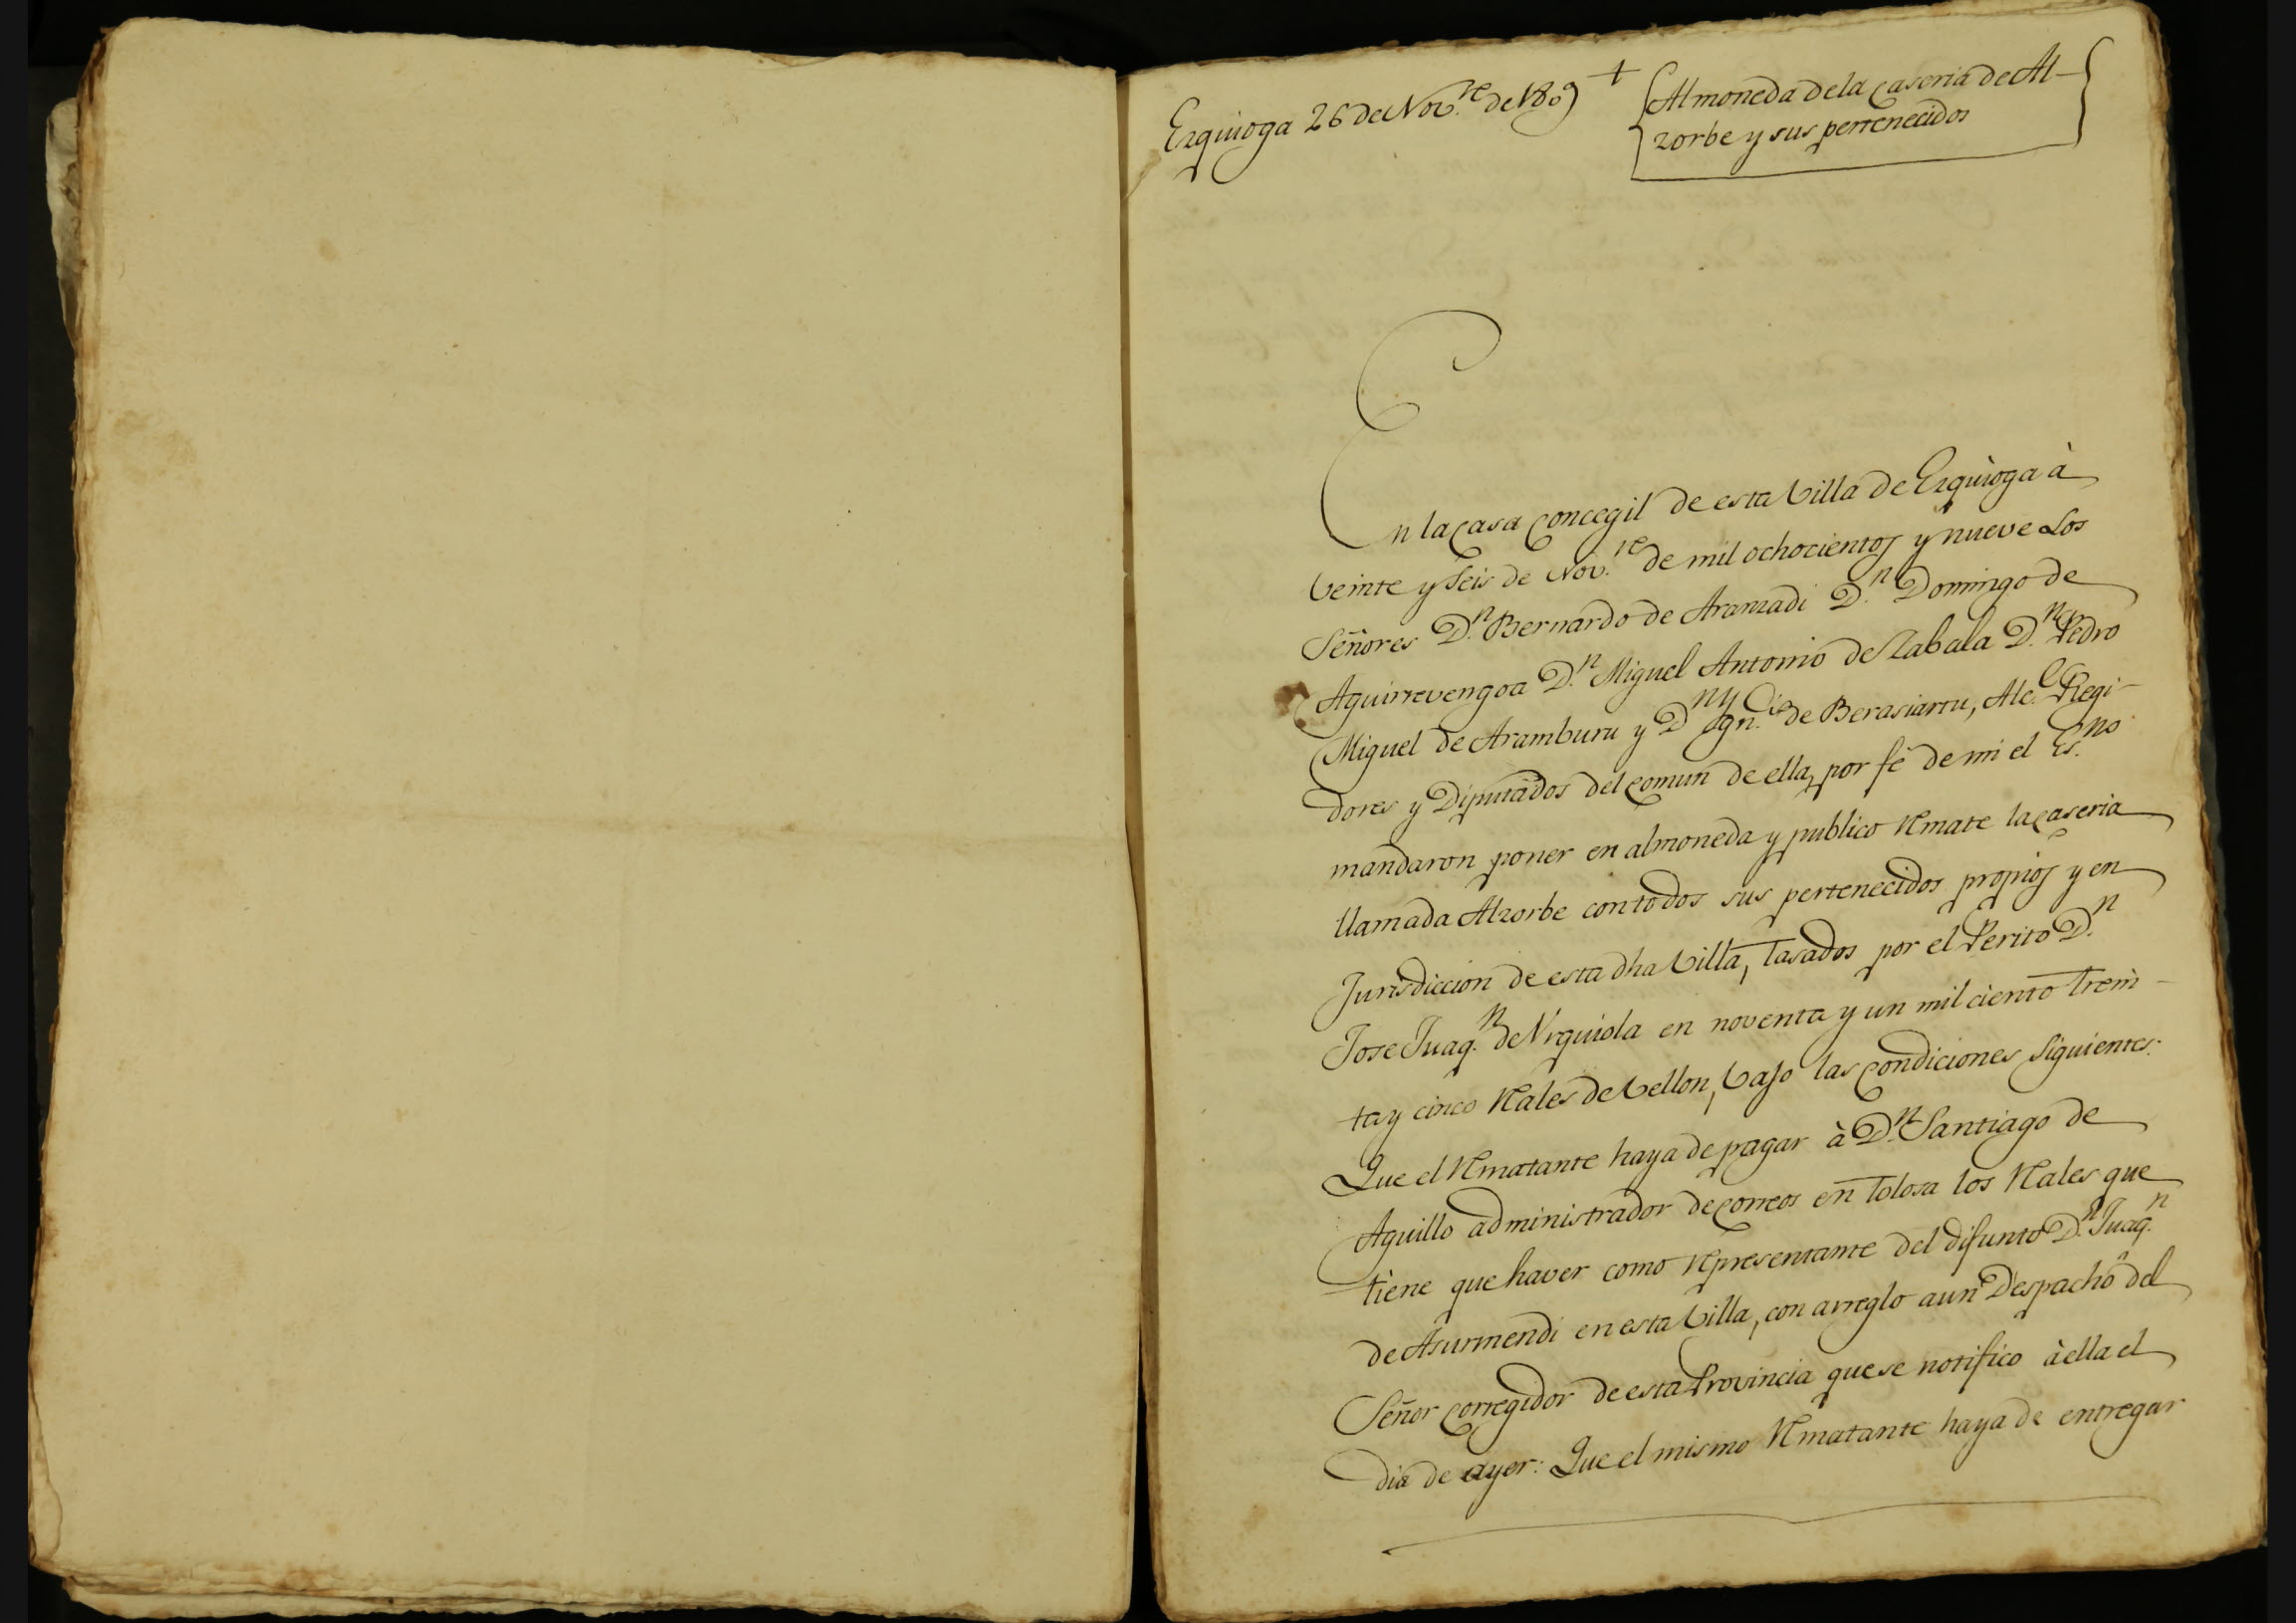 Ezquioga 26 de Nov.re de 1809 +
Almoneda de la caseria de Al-
zorbe y sus pertenecidos
En la casa concegil de esta Villa de Ezquioga à
Veinte y Seis de Nov.re de mil ochocientos y nueve Los
Señores D.n Bernardo de Aranzadi D.n Domingo de
Aguirrevengoa D.n Miguel Antonio de Zabala D.n Pedro
Miguel de Aramburu y D.n Ygn.cio de Berasiartu, Alc.e Regi-
dores y Diputados del comun de ella, por fé de mi el Es.no
mandaron poner en almoneda y publico Rmate la caseria
llamada Alzorbe con todos sus pertenecidos propios y en
Jurisdiccion de esta dha Villa, tasados por el Perito D.n
Jose Juaq.n de Yrquiola en noventa y un mil ciento trein-
ta y cinco Rales de Vellon, Vajo las condiciones Siguientes:
Que el Rmatante haya de pagar à D.n Santiago de
Aguillo administrador de correos en Tolosa los Rales que
tiene que haver como Rpresentante del difunto D.n Juaq.n
de Asurmendi en esta Villa, con arreglo a un Despachô del
Señor corregidor de esta Provincia que se notifico à ella el
dia de ayer: Que el mismo Rmatante haya de entregar